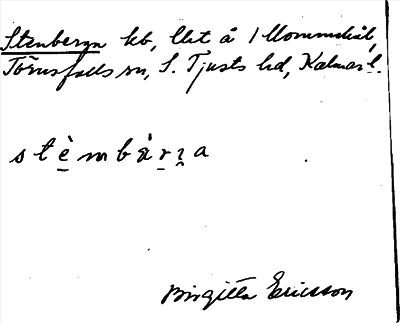 Stenberga kb, lllet å 1 Mommehål,
Törnsfalls sn, S. Tjusts hd, Kalmar l.
stè̱mbà̱r̠ı̯a
Birgitta Ericsson